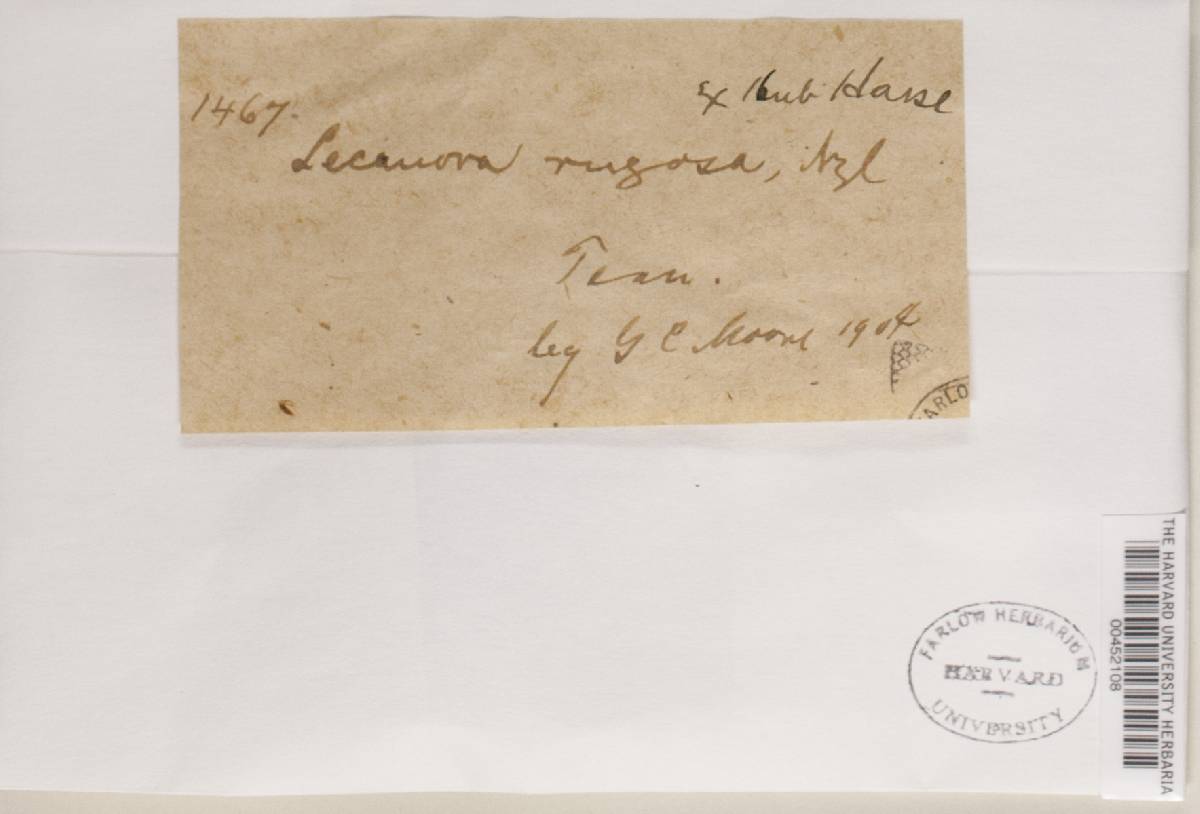 1467.
Ex Herb Hasse
Lecanora rugosa, Nyl
Tenn.
leg G C Moore 1904
FARLO
FARLOW HERBARIUM
HARVARD
UNIVERSITY
THE HARVARD UNIVERSITY HERBARIA
00452108